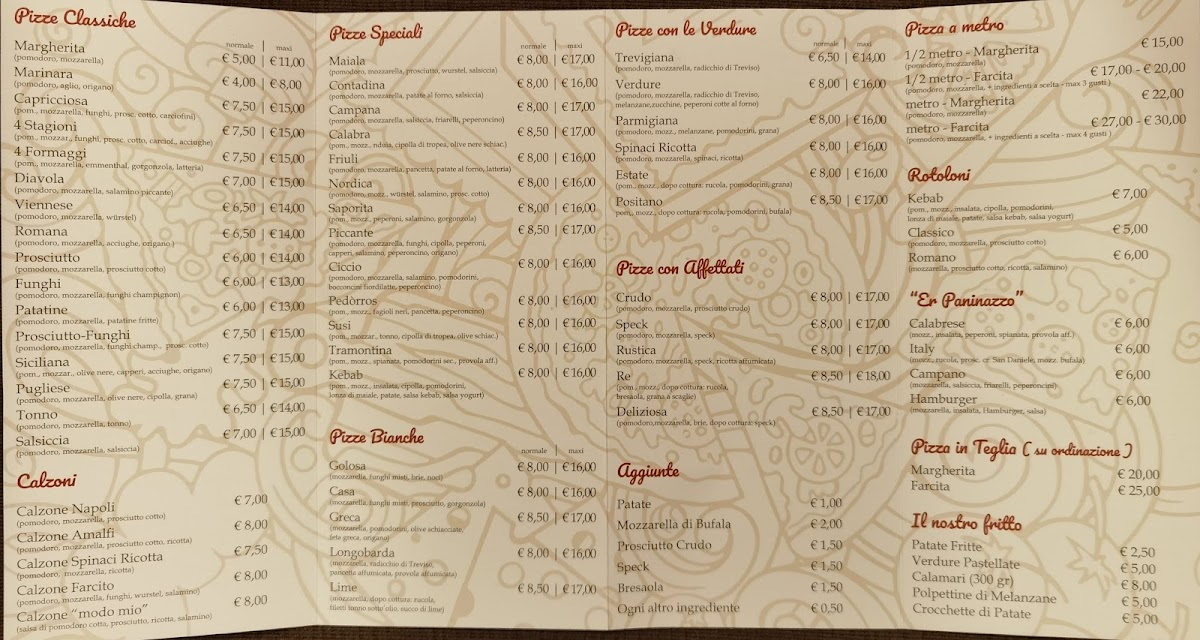 Pizze Classiche
normale | maxi
Margherita € 5,00 | € 11,00
(pomodoro, mozzarella)
Marinara € 4,00 | € 8,00
(pomodoro, aglio, origano)
Capricciosa € 7,50 | € 15,00
(pom., mozzarella, funghi, prosc. cotto, carciofini)
4 Stagioni € 7,50 | € 15,00
(pom., mozzar., funghi, prosc. cotto, carciof., acciughe)
4 Formaggi € 7,50 | € 15,00
(pom., mozzarella, emmenthal, gorgonzola, latteria)
Diavola € 7,00 | € 15,00
(pomodoro, mozzarella, salamino piccante)
Viennese € 6,50 | € 14,00
(pomodoro, mozzarella, würstel)
Romana € 6,50 | € 14,00
(pomodoro, mozzarella, acciughe, origano.)
Prosciutto € 6,00 | € 14,00
(pomodoro, mozzarella, prosciutto cotto)
Funghi € 6,00 | € 13,00
(pomodoro, mozzarella, funghi champignon)
Patatine € 6,00 | € 13,00
(pomodoro, mozzarella, patatine fritte)
Prosciutto-Funghi € 7,50 | € 15,00
(pomodoro, mozzarella, funghi champ., prosc. cotto)
Siciliana € 7,50 | € 15,00
(pom., mozzar., olive nere, capperi, acciughe, origano)
Pugliese € 7,50 | € 15,00
(pomodoro, mozzarella, olive nere, cipolla, grana)
Tonno € 6,50 | € 14,00
(pomodoro, mozzarella, tonno)
Salsiccia € 7,00 | € 15,00
(pomodoro, mozzarella, salsiccia)
Calzoni
Calzone Napoli € 7,00
(pomodoro, mozzarella, prosciutto cotto)
Calzone Amalfi € 8,00
(pomodoro, mozzarella, prosciutto cotto, ricotta)
Calzone Spinaci Ricotta € 7,50
(pomodoro, mozzarella, ricotta)
Calzone Farcito € 8,00
(pomodoro, mozzarella, funghi, wurstel, salamino)
Calzone "modo mio" € 8,00
(salsa di pomodoro cotta, prosciutto, ricotta, salamino)
Pizze Speciali
normale | maxi
Maiala € 8,00 | € 17,00
(pomodoro, mozzarella, prosciutto, wurstel, salsiccia)
Contadina € 8,00 | € 16,00
(pomodoro, mozzarella, patate al forno, salsiccia)
Campana € 8,00 | € 17,00
(pomodoro, mozzarella, salsiccia, friarielli, peperoncino)
Calabra € 8,50 | € 17,00
(pom., mozz., nduia, cipolla di tropea, olive nere schiac.)
Friuli € 8,00 | € 16,00
(pomodoro, mozzarella, pancetta, patate al forno, latteria)
Nordica € 8,00 | € 16,00
(pomodoro, mozz., würstel, salamino, prosc. cotto)
Saporita € 8,00 | € 16,00
(pom., mozz., peperoni, salamino, gorgonzola)
Piccante € 8,50 | € 17,00
(pomodoro, mozzarella, funghi, cipolla, peperoni,
capperi, salamino, peperoncino, origano)
Ciccio € 8,00 | € 16,00
(pomodoro, mozzarella, salamino, pomodorini,
bocconcini fiordilatte, peperoncino)
Pedòrros € 8,00 | € 16,00
(pom., mozz., fagioli neri, pancetta, peperoncino)
Susi € 8,00 | € 16,00
(pom., mozzar., tonno, cipolla di tropea, olive schiac.)
Tramontina € 8,00 | € 16,00
(pom., mozz., spianata, pomodorini sec., provola aff.)
Kebab € 8,00 | € 16,00
(pom., mozz., insalata, cipolla, pomodorini,
lonza di maiale, patate, salsa kebab, salsa yogurt)
Pizze Bianche
normale | maxi
Golosa € 8,00 | € 16,00
(mozzarella, funghi misti, brie, noci)
Casa € 8,00 | € 16,00
(mozzarella, funghi misti, prosciutto, gorgonzola)
Greca € 8,50 | € 17,00
(mozzarella, pomodorini, olive schiacciate,
feta greca, origano)
Longobarda € 8,00 | € 16,00
(mozzarella, radicchio di Treviso,
pancetta affumicata, provola affumicata)
Lime € 8,50 | € 17,00
(mozzarella, dopo cottura: rucola,
filetti tonno sott'olio, succo di lime)
Pizze con le Verdure
normale | maxi
Trevigiana € 6,50 | € 14,00
(pomodoro, mozzarella, radicchio di Treviso)
Verdure € 8,00 | € 16,00
(pomodoro, mozzarella, radicchio di Treviso,
melanzane,zucchine, peperoni cotte al forno)
Parmigiana € 8,00 | € 16,00
(pomodoro, mozz., melanzane, pomodorini, grana)
Spinaci Ricotta € 8,00 | € 16,00
(pomodoro, mozzarella, spinaci, ricotta)
Estate € 8,00 | € 16,00
(pom., mozz., dopo cottura: rucola, pomodorini, grana)
Positano € 8,50 | € 17,00
(pom., mozz., dopo cottura: rucola, pomodorini, bufala)
Pizze con Affettati
Crudo € 8,00 | € 17,00
(pomodoro, mozzarella, prosciutto crudo)
Speck € 8,00 | € 17,00
(pomodoro, mozzarella, speck)
Rustica € 8,00 | € 17,00
(pomodoro, mozzarella, speck, ricotta affumicata)
Re € 8,50 | € 18,00
(pom., mozz., dopo cottura: rucola,
bresaola, grana a scaglie)
Deliziosa € 8,50 | € 17,00
(pomodoro,mozzarella, brie, dopo cottura: speck)
Aggiunte
Patate € 1,00
Mozzarella di Bufala € 2,00
Prosciutto Crudo € 1,50
Speck € 1,50
Bresaola € 1,50
Ogni altro ingrediente € 0,50
Pizza a metro
1/2 metro - Margherita € 15,00
(pomodoro, mozzarella)
1/2 metro - Farcita € 17,00 - € 20,00
(pomodoro, mozzarella, + ingredienti a scelta - max 3 gusti )
metro - Margherita € 22,00
(pomodoro, mozzarella)
metro - Farcita € 27,00 - € 30,00
(pomodoro, mozzarella, + ingredienti a scelta - max 4 gusti )
Rotoloni
Kebab € 7,00
(pom., mozz., insalata, cipolla, pomodorini,
lonza di maiale, patate, salsa kebab, salsa yogurt)
Classico € 5,00
(pomodoro, mozzarella, prosciutto cotto)
Romano € 6,00
(mozzarella, prosciutto cotto, ricotta, salamino)
"Er Paninazzo"
Calabrese € 6,00
(mozz., insalata, peperoni, spianata, provola aff.)
Italy € 6,00
(mozz., rucola, prosc. cr. San Daniele, mozz. bufala)
Campano € 6,00
(mozzarella, salsiccia, friarielli, peperoncini)
Hamburger € 6,00
(mozzarella, insalata, Hamburger, salsa)
Pizza in Teglia ( su ordinazione )
Margherita € 20,00
Farcita € 25,00
Il nostro fritto
Patate Fritte € 2,50
Verdure Pastellate € 5,00
Calamari (300 gr) € 8,00
Polpettine di Melanzane € 5,00
Crocchette di Patate € 5,00